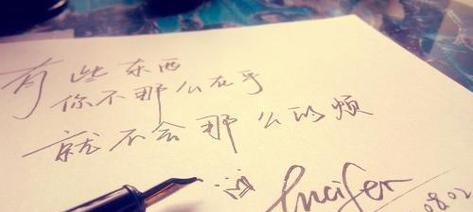 有些东西
你不那么在乎
就不会那么的烦
Lucifer
08.02